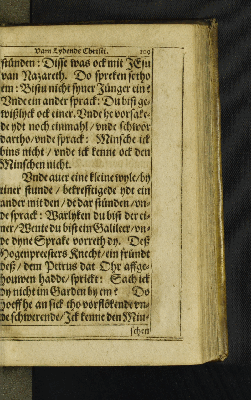 Vam Lydende Christi. 109
stünden: Disse was ock mit JEsu
van Nazareth. Do spreken se tho
em: Bistu nicht syner Jünger ein?
Vnde ein ander sprack: Du bist ge-
wißlyck ock einer. Vnde he vorsake-
de ydt noch einmahl / vnde schwör
dartho / vnde sprack: Minsche ick
bins nicht / vnde ick kenne ock den
Minschen nicht.
Vnde auer eine kleine wyle / by
einer stunde / bekrefftigede ydt ein
ander mit den / de dar stünden / vn-
de sprack: Warlyken du bist der ei-
ner / Wente du bist ein Galileer / vn-
de dyne Sprake vorreth dy. Deß
Hogenpreesters Knecht / ein fründt
deß / dem Petrus dat Ohr affge-
houwen hadde / sprickt: Sach ick
dy nicht im Garden by em? Do
hoeff he an sick tho vorflökende vn-
de schwerende / Ick kenne den Min-
schen